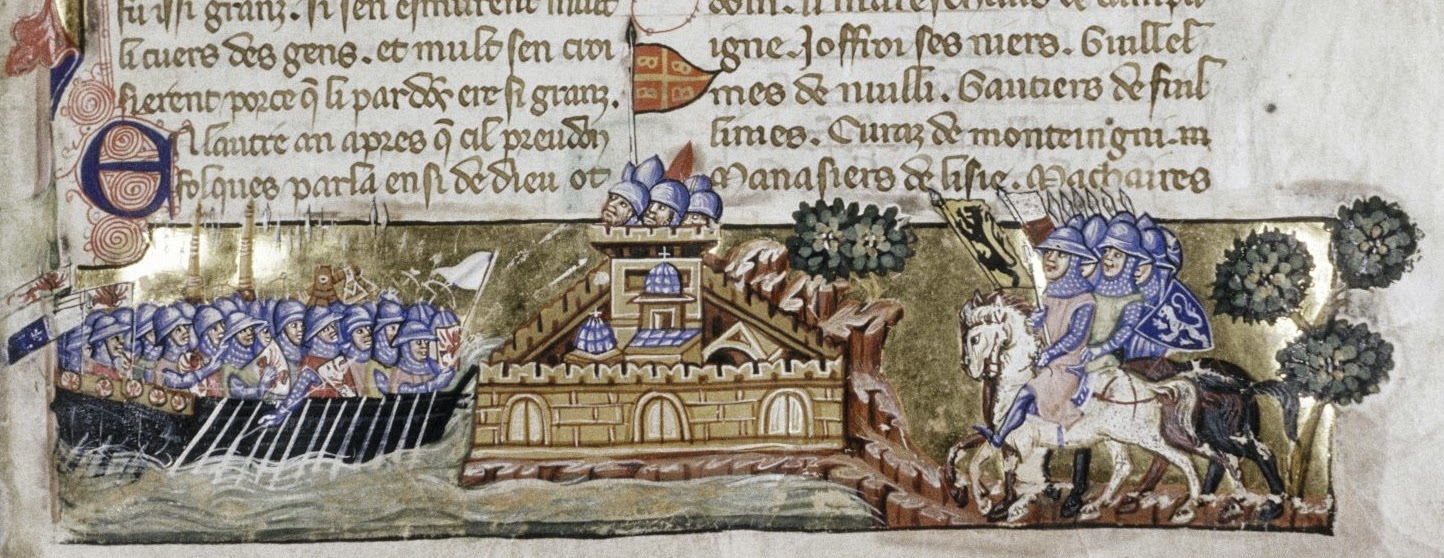 fu issi granz. si sen esmurent mult
li cuers des gens. et mult sen croi
sierent porce q̃ li pardōs ere si granz.
E
A lautre an apres q̃ cil preudon
folques parla ensi de dieu ot
dom. li mareschaus de campa
igne. Joffroi ses niers. Guillel
mes de nuilli. Gautiers de fuil
lines. Euraz de monteingni.
Manasiers de lisie. Machaires